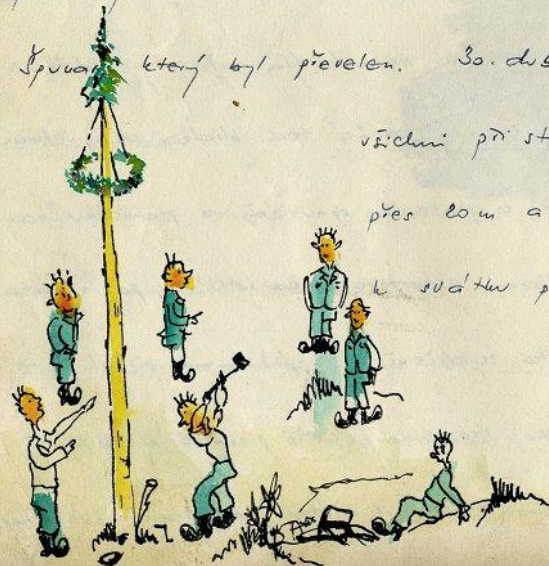 který byl převelen. 30. dub
všichni při st
přes 20 m a
svátku p